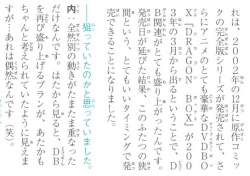 れは、2002年の12月に原作コミッ
クの完全版シリーズが発売されて、さ
らにアニメのとても豪華なDVDBO
X『DRAGON BOX』が200
3年の3月から出るということで、D
B関連がとても盛り上がったんです。
発売日が延びた結果、このふたつの狭
間というとてもいいタイミングで発
売できることになりました。
――狙っていたのかと思っていました。
内：全然別の動きがたまたま重なった
だけなんです。はたから見ると、DB
を再び盛り上げるプランが、あたかも
ちゃんと考えられていたように見えま
すが、あれは偶然なんです（笑）。